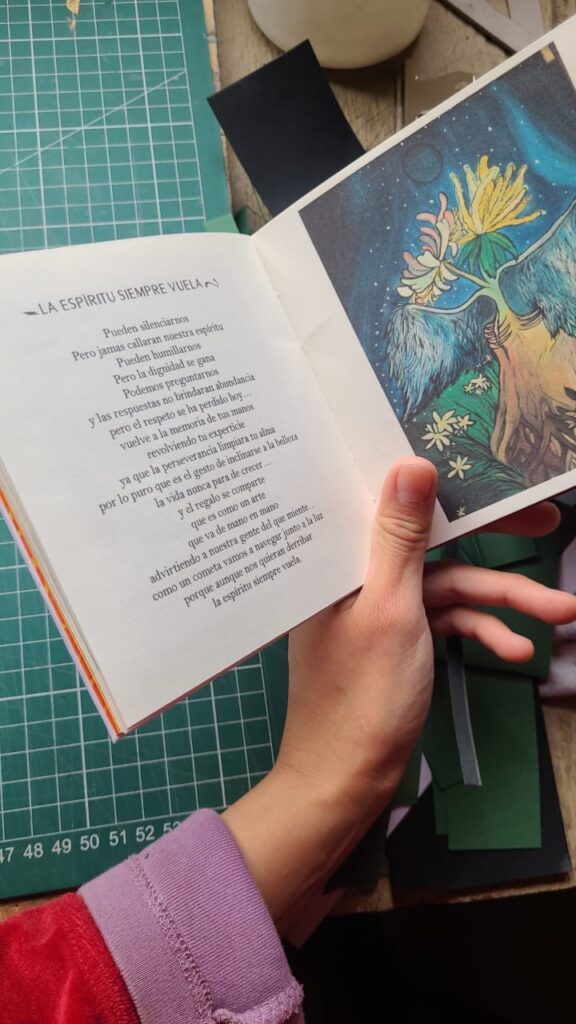 LA ESPÍRITU SIEMPRE VUELA
Pueden silenciarnos
Pero jamas callaran nuestra espíritu
Pueden humillarnos
Pero la dignidad se gana
Podemos preguntarnos
y las respuestas no brindaran abundancia
pero el respeto se ha perdido hoy...
vuelve a la memoria de tus manos
revolviendo tu experticie
ya que la perseverancia limpiara tu alma
por lo puro que es el gesto de inclinarse a la belleza
la vida nunca para de crecer...
y el regalo se comparte
que es como un arte
que va de mano en mano
advirtiendo a nuestra gente del que miente...
como un cometa vamos a navegar junto a la luz
porque aunque nos quieran derribar
la espíritu siempre vuela.
47 48 49 50 51 52